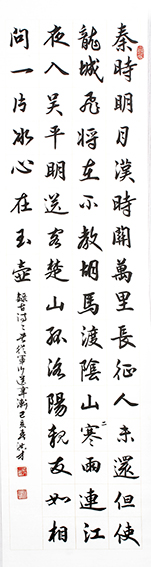 秦時明月漢時關萬里長征人未還但使
龍城飛將在不教胡馬渡陰山寒雨連江
夜入吳平明送客楚山孤洛陽親友如相
問一片冰心在玉壺